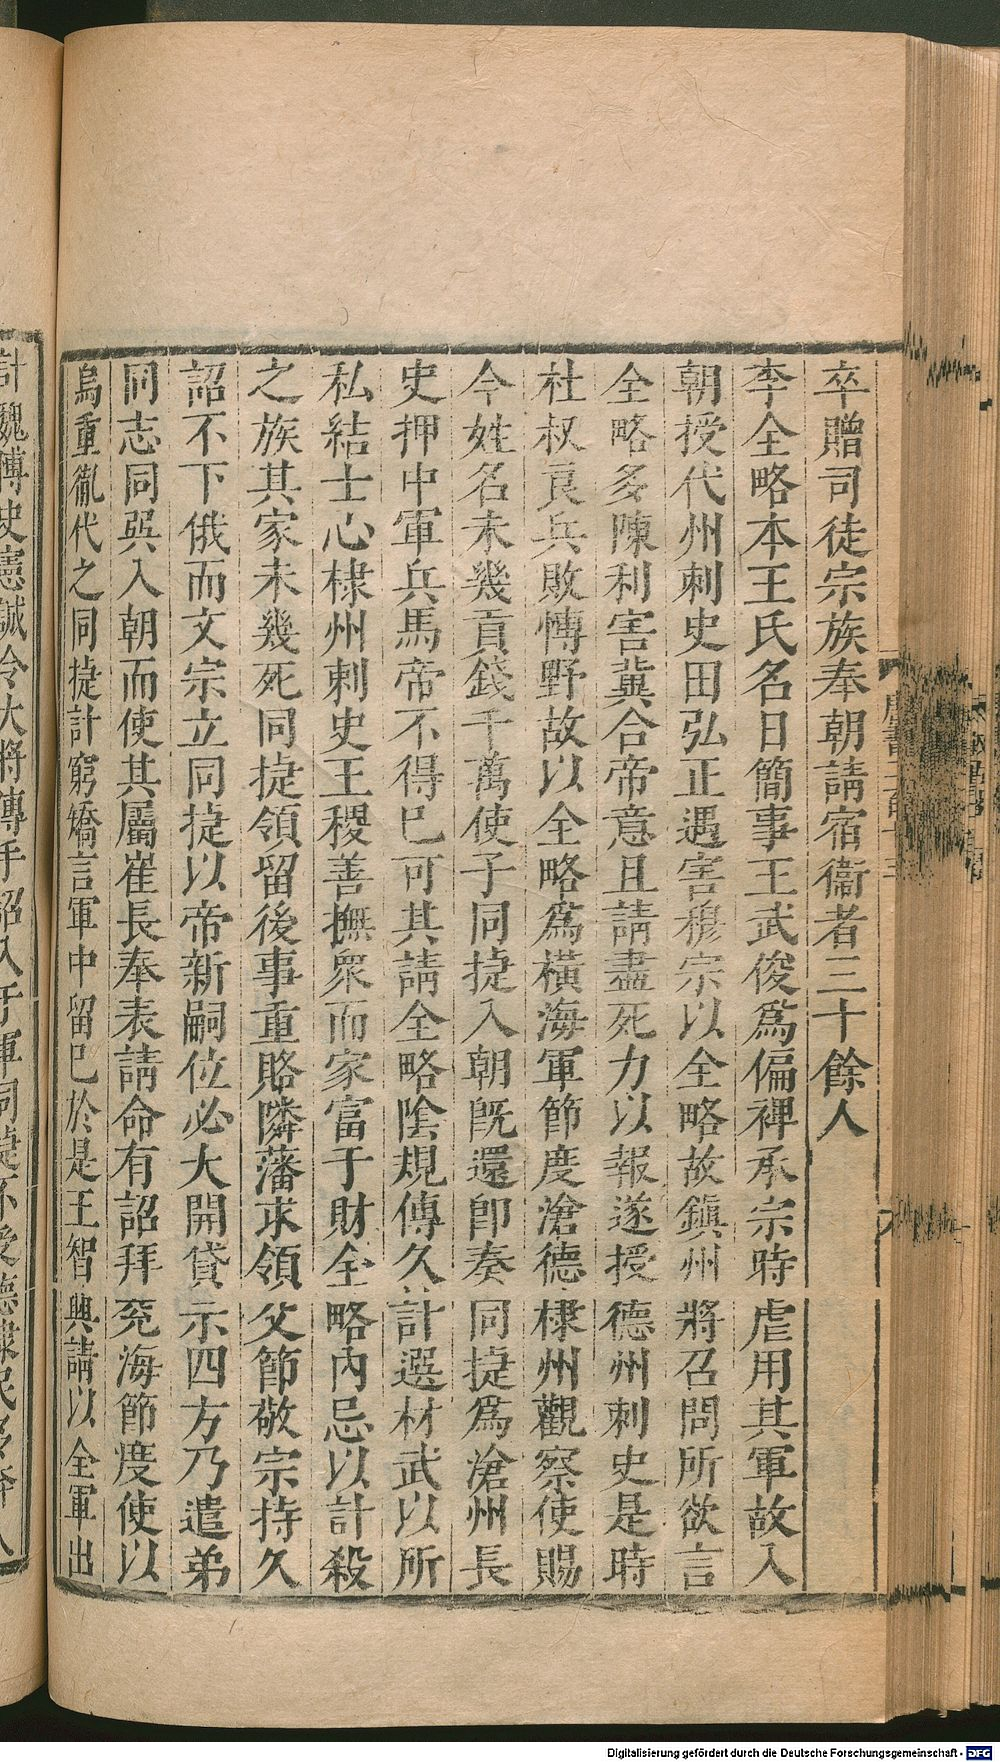 卒贈司徒宗族奉朝請宿衞者三十餘人
李全略本王氏名日簡事王武俊爲偏裨承宗時虐用其軍故入
朝授代州刺史田弘正遇害穆宗以全略故鎭州將召問所欲言
全略多陳利害冀合帝意且請盡死力以報遂授德州刺史是時
杜叔良兵敗慱野故以全略爲橫海軍節度滄德棣州觀察使賜
今姓名未幾貢錢千萬使子同捷入朝旣還卽奏同捷爲滄州長
史押中軍兵馬帝不得已可其請全略陰規傳久計選材武以所
私結士心棣州刺史王稷善撫衆而家富于財全略內忌以計殺
之族其家未幾死同捷領留後事重賂隣藩求領父節敬宗持久
詔不下俄而文宗立同捷以帝新嗣位必大開貸示四方乃遣弟
同志同巽入朝而使其屬崔長奉表請命有詔拜兗海節度使以
烏重胤代之同捷計窮矯言軍中留已於是王智興請以全軍出
計魏博史憲誠令大將傅手詔入于軍同捷不受德棣民多奔入
Digitalisierung gefördert durch die Deutsche Forschungsgemeinschaft - DFG